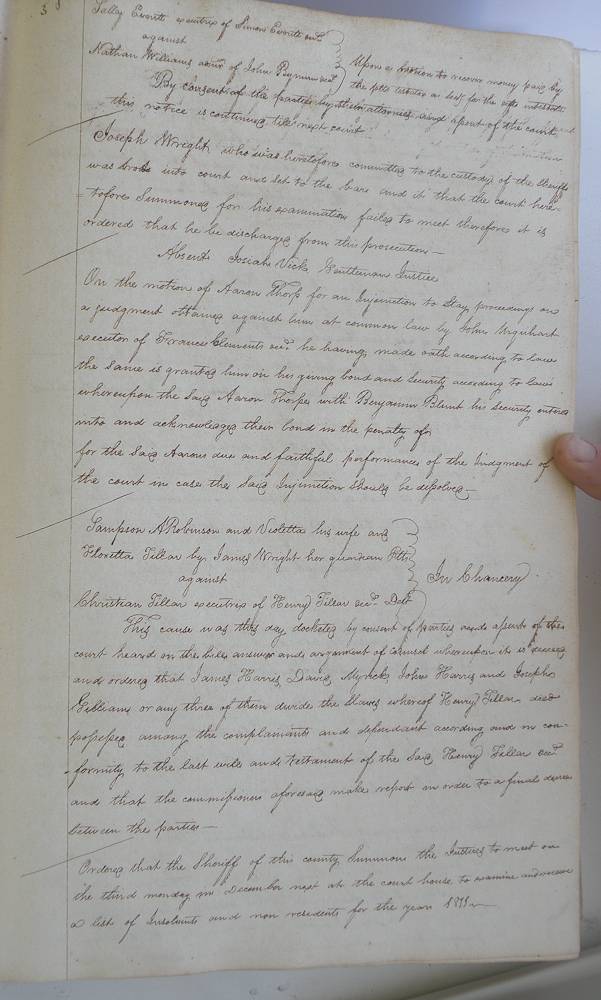 3
Sally Everitt executrix of Simon Everitt decd.
against
Nathan Williams admr. of John Peyman decd.
Upon a motion to recover money paid by
the plts testator as secy for the defts intestate
By consent of the parties by their attornies and assent of the court
this notice is continued till next court
Joseph Wright who was heretofore committed to the custody of the Sheriff
was brot. into court and set to the barr and it that the court here-
tofore Summoned for his examination failed to meet therefore it is
ordered that he be discharged from this prosecution —
Absent Josiah Vick Gentleman Justice
On the motion of Aaron Thorp for an Injunction to Stay proceedings on
a judgment obtained against him at common law by John Urquhart
executor of Francis Clements decd. he having made oath according to law
the same is granted him on his giving bond and Security according to law
whereupon the Said Aaron Thorpe with Benjamin Blunt his Security entered
into and acknowledged their bond in the penalty of
for the Said Aarons due and faithful performance of the Judgment of
the court in case the Said Injunction Should be dissolved —
Sampson A Robinson and Violetta his wife and
Floretta Fillar by James Wright her guardian Plts
against
In Chancery
Christian Fillar executrix of Henry Fillar decd. Deft
This cause was this day docketed by consent of parties and assent of the
court heard on the bill answer and argument of counsel whereupon it is decreed
and ordered that James Harris, David Myrick, John Harris and Joseph
Gilliam or any three of them divide the Slaves whereof Henry Fillar died
possessed among the complainants and defendant according and in con-
formity to the last will and testament of the Said Henry Fillar decd.
and that the commissioners aforesaid make report in order to a final decree
between the parties —
Ordered that the Sheriff of this county Summon the Justices to meet on
the third monday in December next at the court house to examine and receive
a list of Insolvents and non residents for the year 1811 —